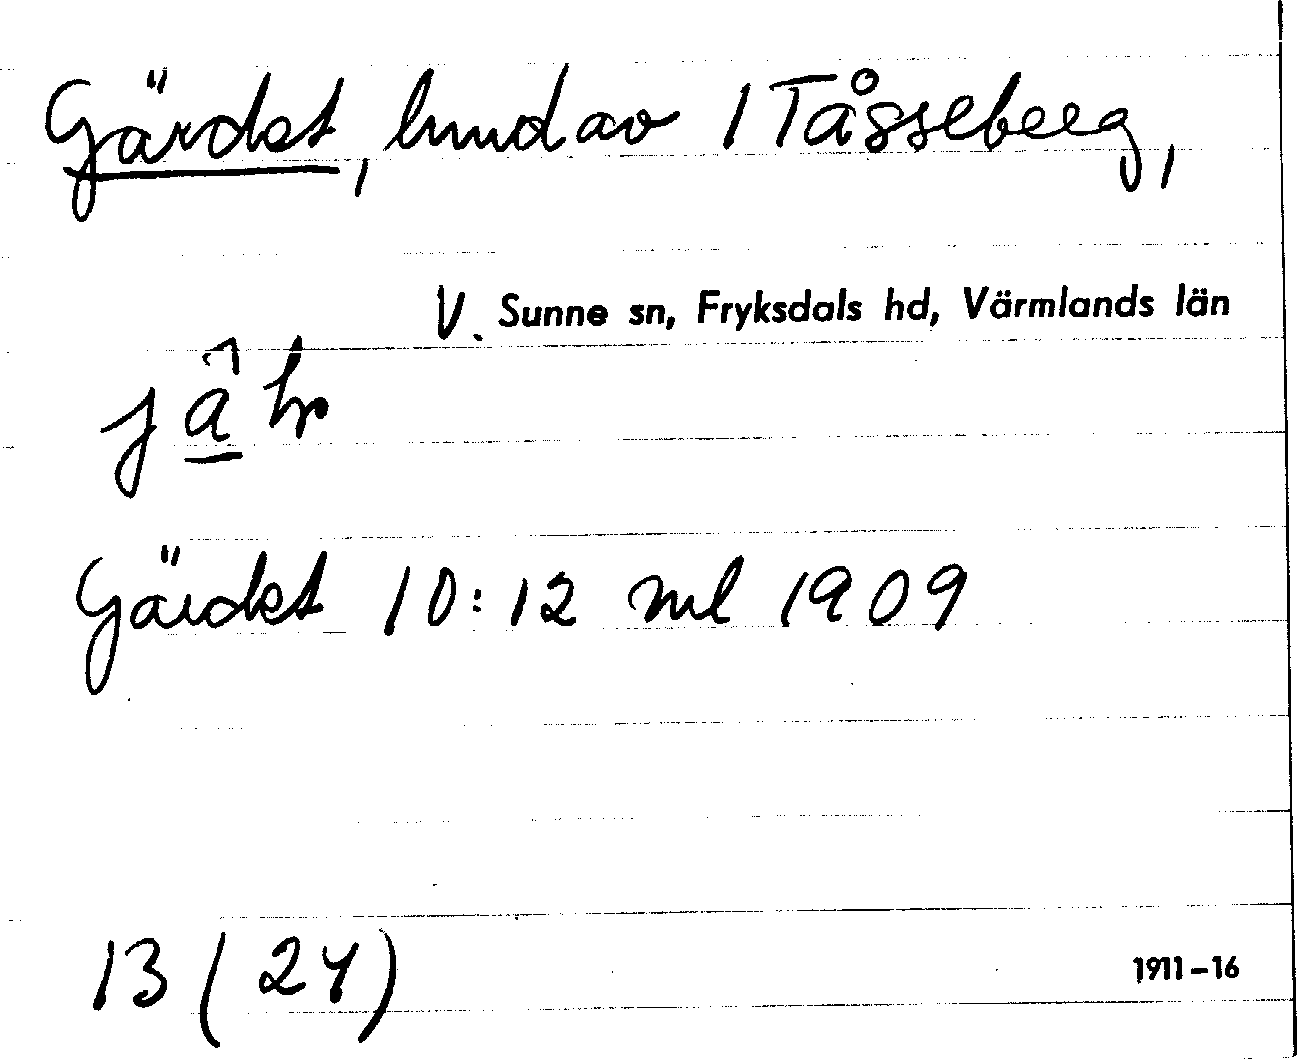 Gärdet, hmd av 1 Tåsseberg,
V. Sunne sn, Fryksdals hd, Värmlands län
Gärdet 10:12 ml 1909
13 (24)
1911-16